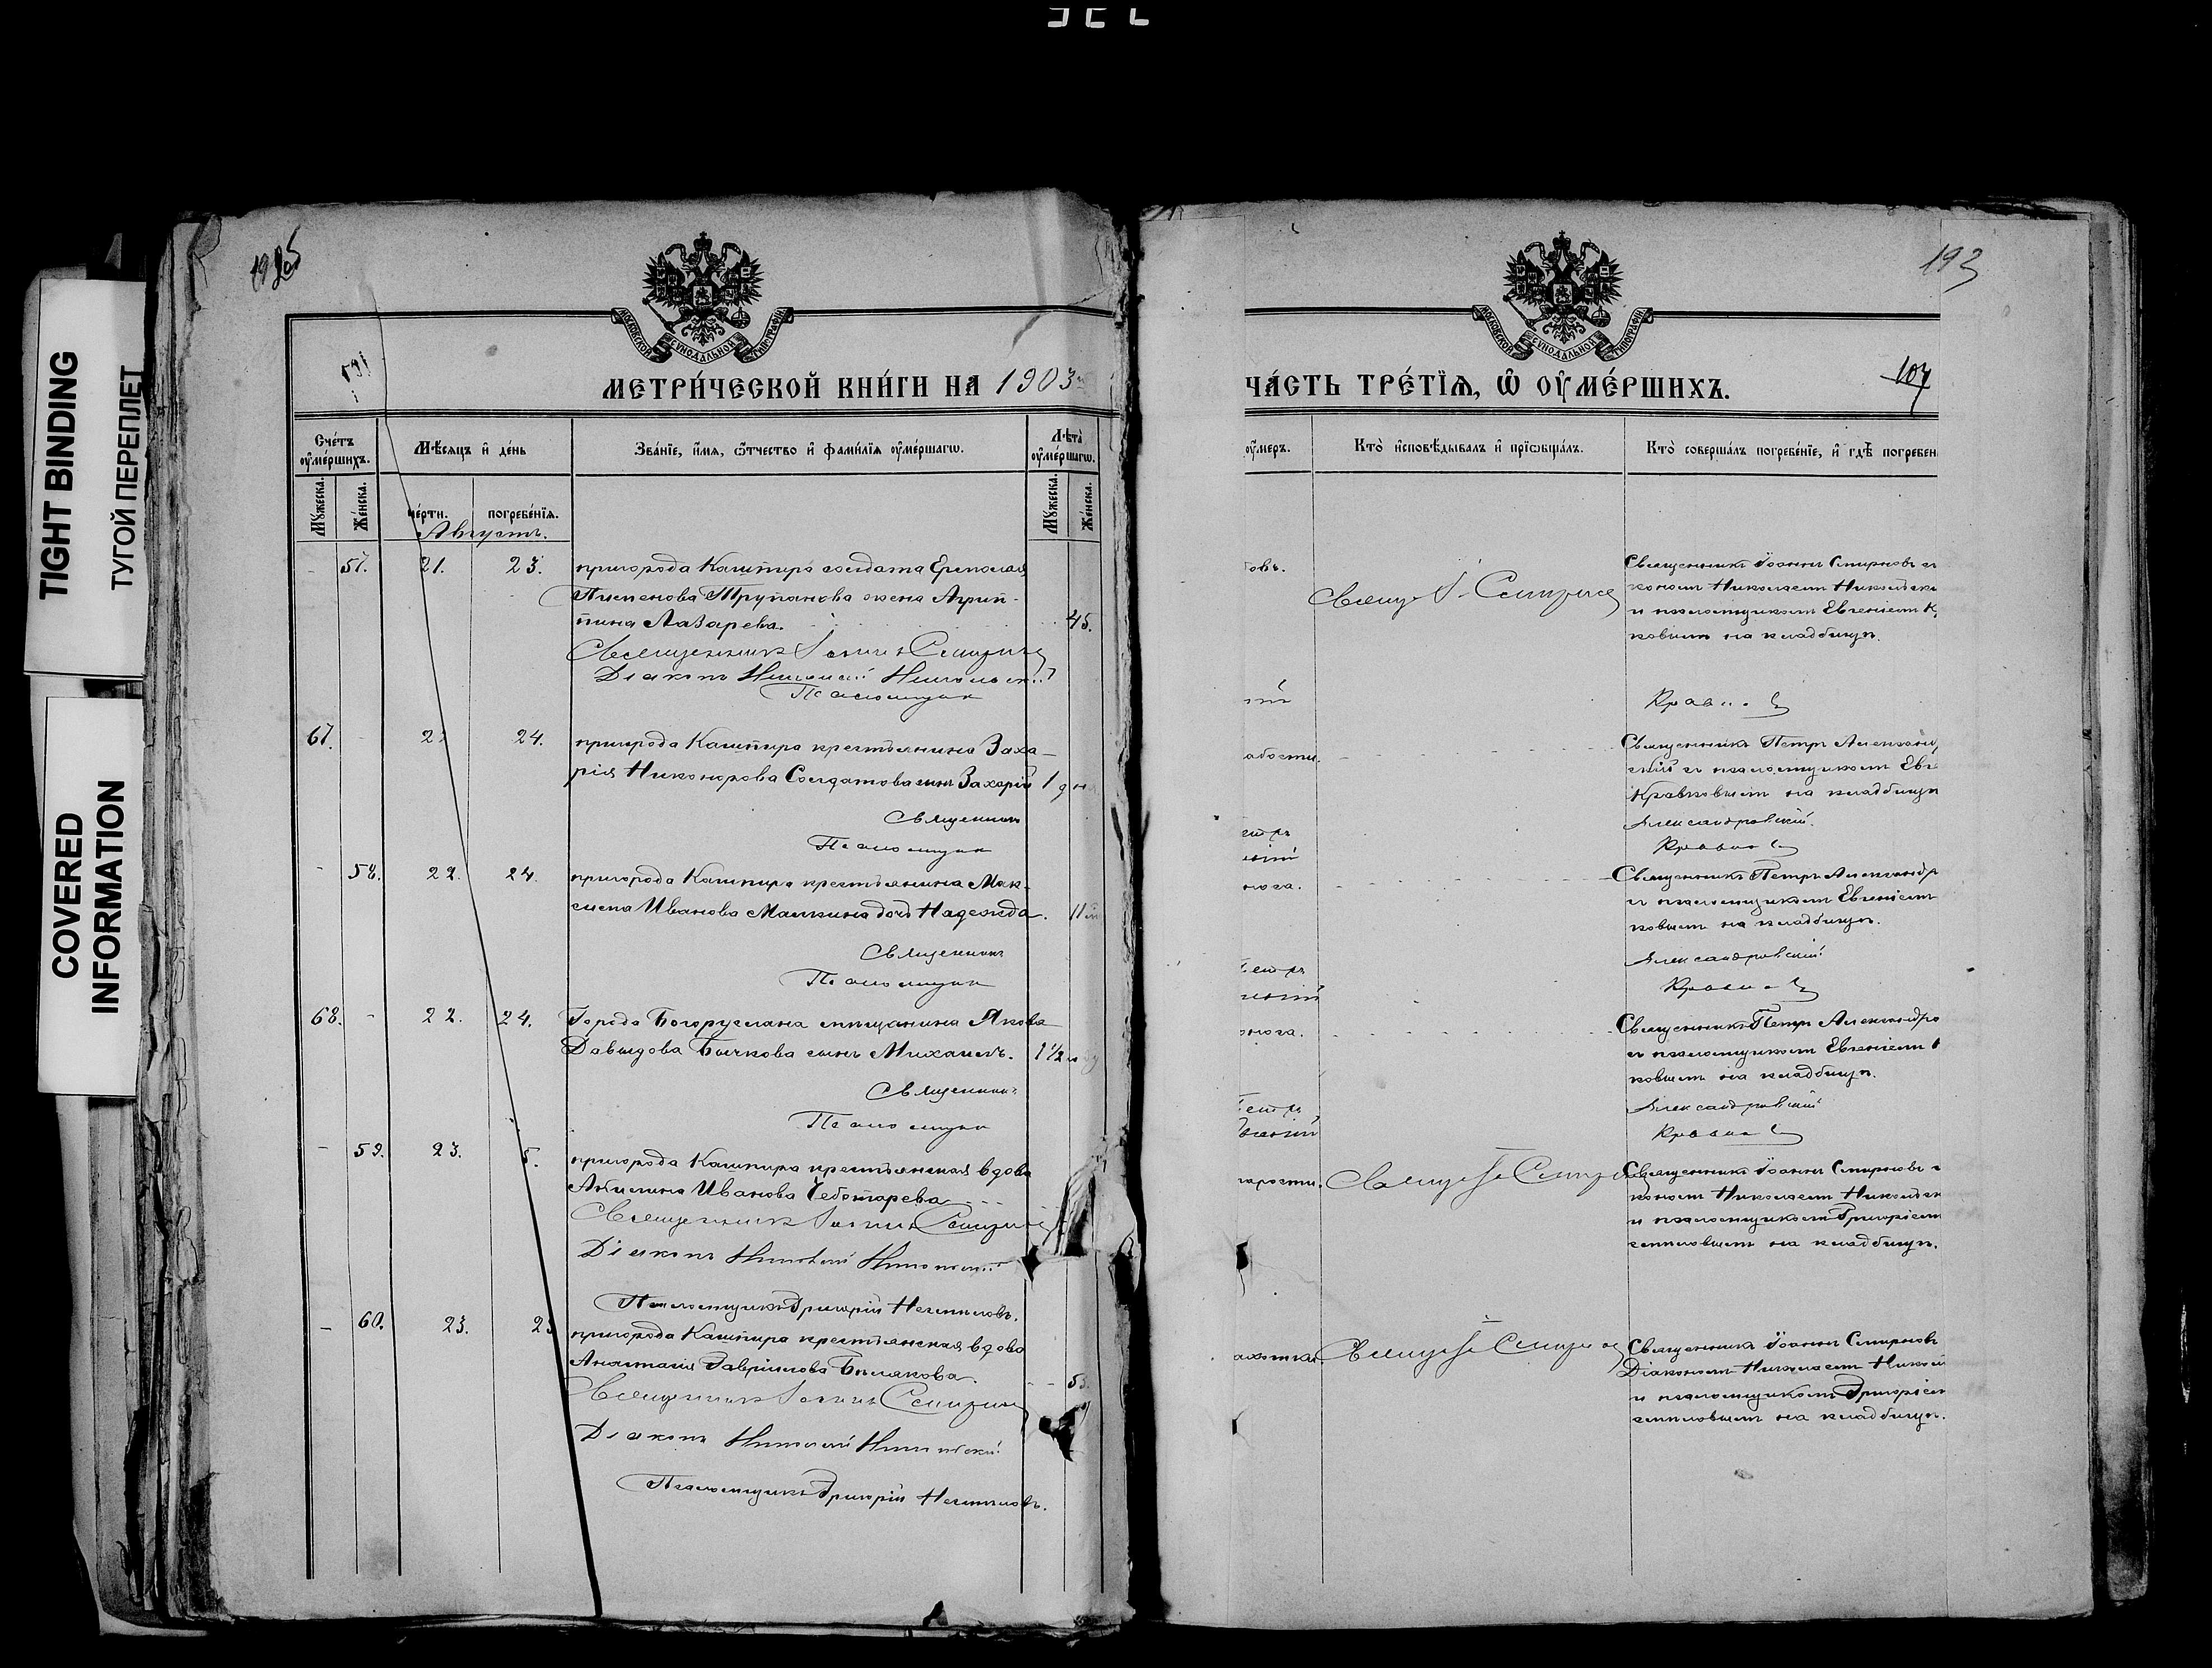 TIGHT BINDING
ТУГОЙ ПЕРЕПЛЕТ
COVERED
INFORMATION
МОСКОВСКОЙ СѴНОДАЛЬНОЙ ТИПОГРАФІИ
МЕТРИ́ЧЕСКОЙ КНИ́ГИ НА 1903
Сче́тъ ᲂу҆ме́ршихъ.
Мѣ́сяцъ и҆ де́нь
Зва́нїе, и҆́мѧ, ѻ҆́тчество и҆ фами́лїѧ ᲂу҆ме́ршагѡ.
Лѣ́та ᲂу҆ме́ршагѡ.
Мꙋ́жеска.
Же́нска.
ме́рти.
погребе́нїѧ.
Мꙋ́жеска.
Же́нска.
Августъ.
57. 21. 23. пригорода Кашпира солдата Ермолая
Пименова Трупанова жена Агрип-
пина Лазарева. 45.
Священникъ Іоаннъ Смирновъ
Діаконъ Николай Никольскій
Псаломщик
67. 24. пригорода Кашпира крестьянина Заха-
рія Никонорова Солдатова сынъ Захарій 1
Священник
Псаломщик
58. 22. 24. пригорода Кашпира крестьянина Мак-
сима Иванова Малкина дочь Надежда. 11
Священник
Псаломщик
68. 22. 24. Города Богоруслана мѣщанина Якова
Давыдова Бычкова сынъ Михаилъ. 1 1/2
Священник
Псаломщик
59. 23. 5. пригорода Кашпира крестьянская вдова
Иванова Чеботарева
Священникъ Іоаннъ Смирновъ
Діаконъ Николай Никольскій
Псаломщикъ Григорій
60. 23. пригорода Кашпира крестьянская вдова
Анастасія Гавріилова Бѣлякова.
Священникъ Іоаннъ Смирновъ
Діаконъ Николай Никольскій
Псаломщикъ Григорій
193
МОСКОВСКОЙ СѴНОДАЛЬНОЙ ТИПОГРАФІИ
ЧА́СТЬ ТРЕ́ТЇѦ, Ѡ҆ ОУ҆МЕ́РШИХЪ.
107
ᲂу҆́меръ.
Кто̀ и҆сповѣ́дывалъ и҆ прїѡбща́лъ.
Кто̀ соверша́лъ погребе́нїе, и҆ гдѣ̀ погребен
овъ. Свящ. І. Смирновъ Священникъ Іоаннъ Смирновъ съ
кономъ Николаемъ Никольски
и псаломщикомъ Евгеніемъ К
ковымъ на кладбищѣ.
абости. Священникъ Петръ Александр
скій съ псаломщикомъ Евге
Кравковымъ на кладбищѣ
Александровскій.
Священникъ Петръ Александр
съ псаломщикомъ Евгеніемъ
ковымъ на кладбищѣ.
Александровскій
Священникъ Петръ Александро
съ псаломщикомъ Евгеніемъ
ковымъ на кладбищѣ.
Александровскій
арости. Свящ. І. Смирновъ Священникъ Іоаннъ Смирновъ с
кономъ Николаемъ Никольск
и псаломщикомъ Григоріемъ
на кладбищѣ.
Свящ. І. Смирновъ Священникъ Іоаннъ Смирновъ
Діакономъ Николаемъ Никол
и псаломщикомъ Григоріем
на кладбищѣ.